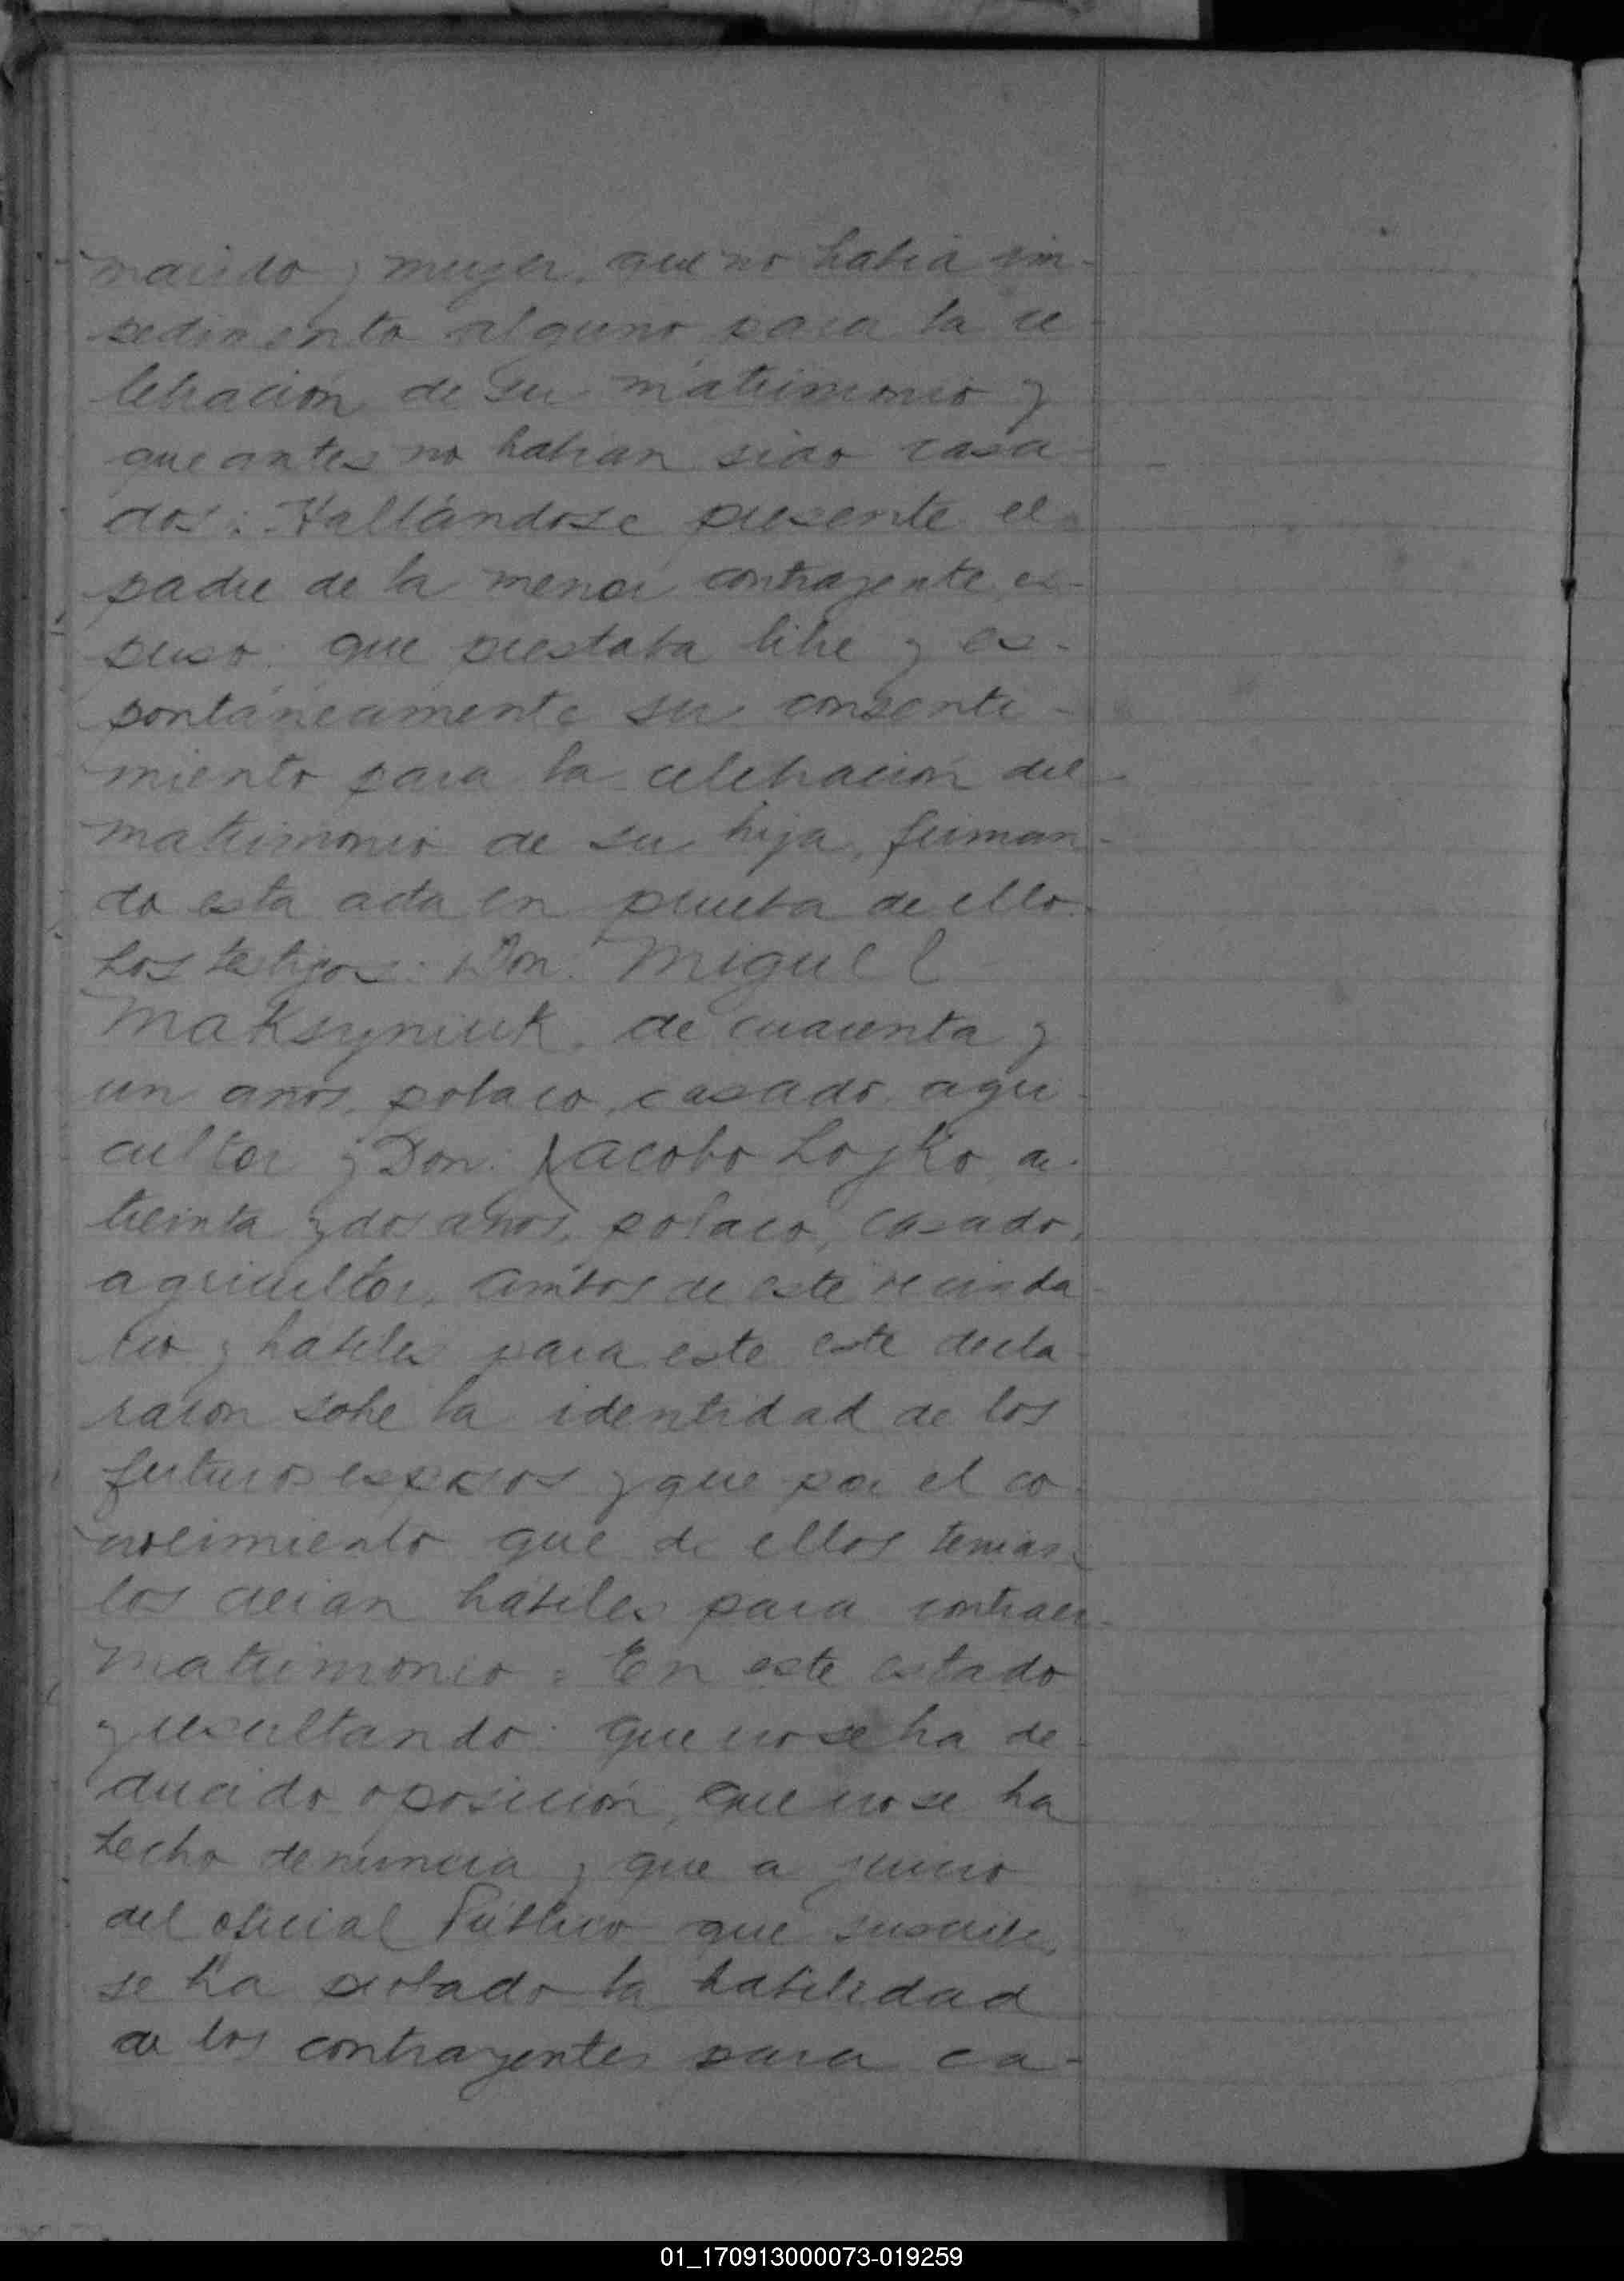 marido y mujer, que no habia im-
pedimento alguno para la ce-
lebracion de su matrimonio y
que antes no habian sido casa-
dos: Hallándose presente el
padre de la menor contrayente ex-
puso: que prestaba libre y es-
pontáneamente su consenti-
miento para la celebracion del
matrimonio de su hija, firman-
do esta acta en prueba de ello.
Los testigos: Don: Miguel
Maksyniuk, de cuarenta y
un años, polaco, casado, agri-
cultor y Don: Jacobo Lojko, de
treinta y dos años, polaco, casado,
agricultor, ambos de este vecinda-
rio y habiles para este este decla-
raron sobre la identidad de los
futuros esposos y que por el co-
nocimiento que de ellos tenian
los creian hábiles para contraer
matrimonio: En este estado
y resultando: que no se ha de-
ducido oposición, que no se ha
hecho denuncia y que a juicio
del oficial Público que suscribe,
se ha probado la habilidad
de los contrayentes para ca-
01_170913000073-019259